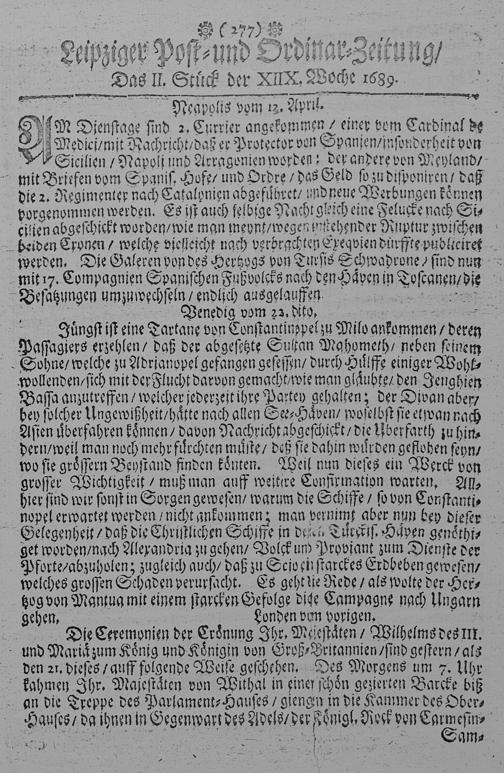 (277)
Leipziger Post- und Ordinar-Zeitung/
Das II. Stück der XIIX. Woche 1689.
Neapolis vom 13. April.
AM Dienstage sind 2. Currier angekommen / einer vom Cardinal de
Medici/mit Nachricht/daß er Protector von Spanien/insonderheit von
Sicilien / Napoli und Arragonien worden: der andere von Meyland/
mit Briefen vom Spanis. Hofe/ und Ordre/ das Geld so zu disponiren / daß
die 2. Regimenter nach Catalonien abgeführet/ und neue Werbungen können
vorgenommen werden. Es ist auch selbige Nacht gleich eine Felucke nach Si-
cilien abgeschickt worden/wie man meynt/wegen entstehender Ruptur zwischen
beiden Cronen / welche vielleicht nach verbrachten Exeqvien dürffte publiciret
werden. Die Galeren von des Hertzogs von Tursis Schwadrone / sind nun
mit 17. Compagnien Spanischen Fußvolcks nach den Häven in Toscanen/die
Besatzungen umzuwechseln / endlich ausgelauffen
Venedig vom 22. dito.
Jüngst ist eine Tartane von Constantinopel zu Milo ankommen / deren
Passagiers erzehlen / daß der abgesetzte Sultan Mahometh/ neben seinem
Sohne/welche zu Adrianopel gefangen gesessen / durch Hülffe einiger Wohl-
wollenden/sich mit der Flucht darvon gemacht/wie man gläubte/ den Jenghien
Bassa anzutreffen / welcher jederzeit ihre Partey gehalten; der Divan aber/
bey solcher Ungewißheit/hätte nach allen See-Häven/ woselbst sie etwan nach
Asien überfahren können / davon Nachricht abgeschickt/die Uberfarth zu hin-
dern/weil man noch mehr fürchten müste / daß sie dahin würden geflohen seyn/
wo sie grössern Beystand finden könten. Weil nun dieses ein Werck von
grosser Wichtigkeit / muß man auff weitere Confirmation warten. All-
hier sind wir sonst in Sorgen gewesen/ warum die Schiffe / so von Constanti-
nopel erwartet werden / nicht ankommen; man vernimt aber nun bey dieser
Gelegenheit / daß die Christlichen Schiffe in denen Türckis. Häven genöthi-
get worden/nach Alexandria zu gehen/ Volck und Proviant zum Dienste der
Pforte/abzuholen; zugleich auch/ daß zu Scio ein starckes Erdbeben gewesen/
welches grossen Schaden verursacht. Es geht die Rede / als wolte der Her-
tzog von Mantua mit einem starcken Gefolge diese Campagne nach Ungarn
gehen. Londen vom vorigen.
Die Ceremonien der Crönung Ihr. Majestäten / Wilhelms des III.
und Mariä zum König und Königin von Groß-Britannien/sind gestern / als
den 21. dieses / auff folgende Weise geschehen. Des Morgens um 7. Uhr
kahmen Ihr. Majestäten von Withal in einer schön gezierten Barcke biß
an die Treppe des Parlament-Hauses / giengen in die Kammer des Ober-
Hauses / da ihnen in Gegenwart des Adels / der Königl. Rock von Carmesin-
Sam-